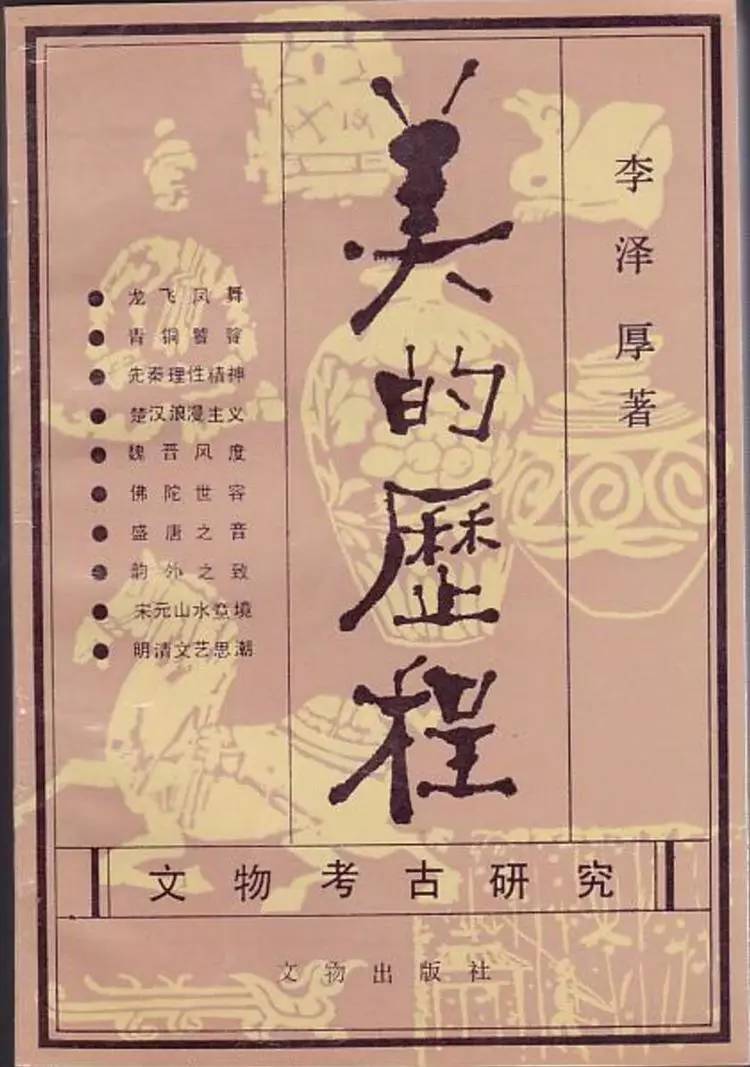 美的歷程
李泽厚著
龙飞凤舞
青铜饕餮
先秦理性精神
楚汉浪漫主义
魏晋风度
佛陀世容
盛唐之音
韵外之致
宋元山水意境
明清文艺思潮
文物考古研究
文物出版社